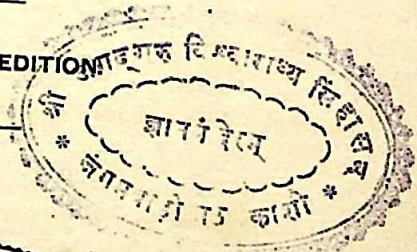 EDITION
श्री जगद्गुरु विश्वाराध्य सिंहासन
ज्ञानमंदिरम्
* जंगमवाड़ी मठ काशी *